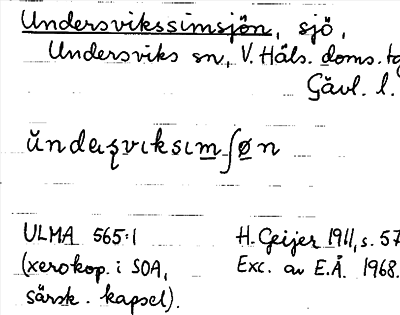 Undersvikssimsjön, sjö,
Undersviks sn, V. Häls. doms. tg
Gävl. l.
ŭndeʂviksim∫øn
ULMA 565:1
(xerokop. i SOA,
särsk. kapsel).
H. Geijer 1911, s. 57
Exc. av E.Å. 1968.